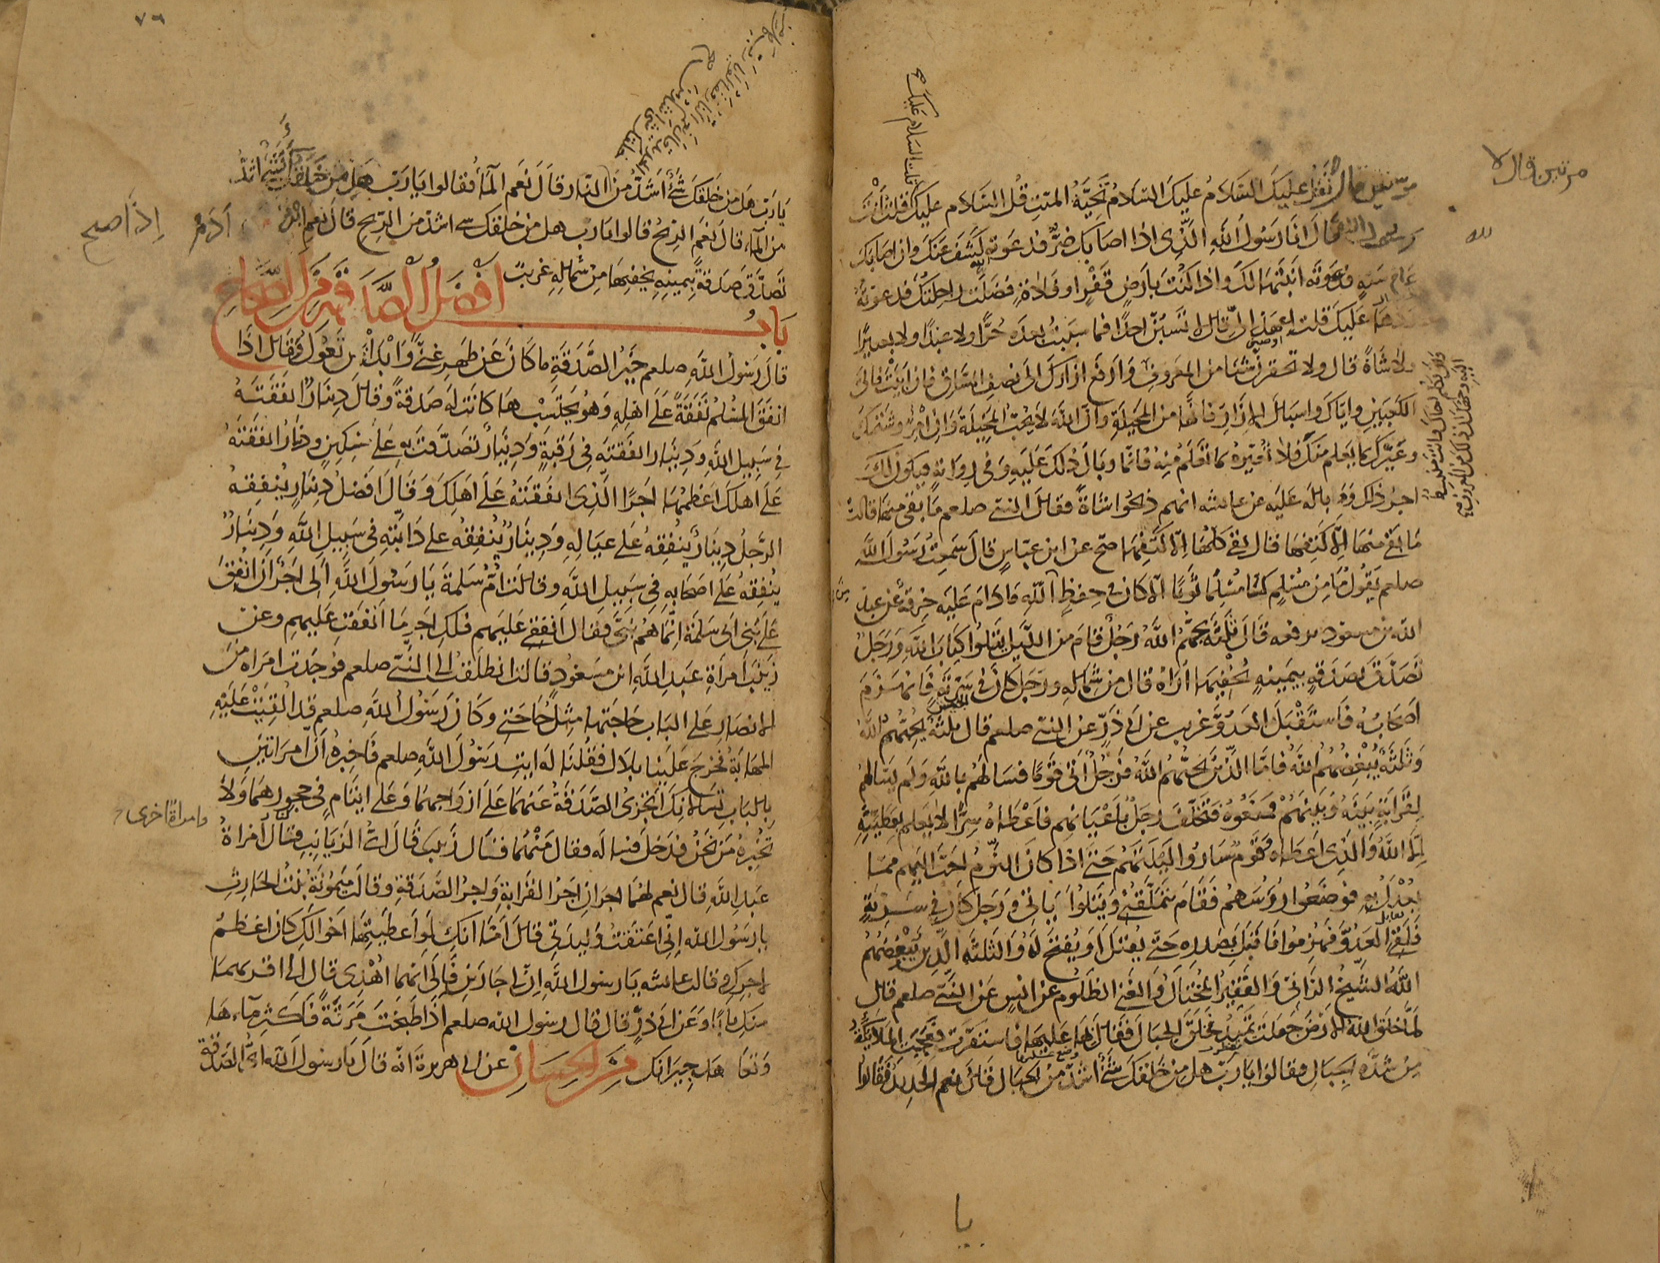 مرتين قال لا تقل عليك السلام عليك السلام تحية الميت قل السلام عليك قلت انت
رسول الله فقال انا رسول الله الذى اذا اصابك ضر فدعوته كشف عنك وان اصابك
عام سنة فدعوته انبتها لك واذا كنت بارض قفر او فلاة فضلت راحلتك فدعوته
ردها عليك قلت اعهد الى قال لا تسبن احدا فما سببت بعده حرا ولا عبدا ولا بعيرا
ولا شاة قال ولا تحقرن شيئا من المعروف وارفع ازارك الى نصف الساق فان ابيت فالى
الكعبين واياك واسبال الازار فانها من المخيلة وان الله لا يحب المخيلة وان امرؤ شتمك
وعيرك بما يعلم منك فلا تعيره بما تعلم منه فانما وبال ذلك عليه وفى رواية فيكون لك
اجر ذلك ووباله عليه عن عايشه انهم ذبحوا شاة فقال النبى صلعم ما بقى منها قالت
ما بقى منها الا كتفها قال بقى كلها الا كتفها صح عن ابن عباس قال سمعت رسول الله
صلعم يقول ما من مسلم كسا مسلما ثوبا الا كان فى حفظ الله ما دام عليه خرقة عن عبد
الله بن مسعود يرفعه قال ثلثة يحبهم الله رجل قام من الليل يتلوا كتاب الله ورجل
تصدق بصدقة بيمينه يخفيها اراه قال من شماله ورجل كان فى سرية فانهزم
اصحابه فاستقبل العدو غريب عن ابى ذر عن النبى صلعم قال ثلثة يحبهم الله
وثلثة يبغضهم الله فاما الذين يحبهم الله فرجل اتى قوما فسالهم بالله ولم يسالهم
لقرابة بينه وبينهم فمنعوه فتخلف رجل باعيانهم فاعطاه سرا لا يعلم بعطيته
الا الله والذى اعطاه وقوم ساروا ليلتهم حتى اذا كان النوم احب اليهم مما
يعدل به فوضعوا رؤسهم فقام يتملقنى ويتلوا اياتى ورجل كان فى سرية
فلقى العدو فهزموا فاقبل بصدره حتى يقتل او يفتح له والثلثة الذين يبغضهم
الله الشيخ الزانى والفقير المختال والغنى الظلوم عن انس عن النبى صلعم قال
لما خلق الله الارض جعلت تميد فخلق الجبال فقال بها عليها فاستقرت فعجبت الملايكة
من شدة الجبال فقالوا يا رب هل من خلقك شئ اشد من الجبال قال نعم الحديد فقالوا
يا رب هل من خلقك شئ اشد من النار قال نعم الماء فقالوا يا رب هل من خلقك شئ اشد
من الماء قال نعم الريح قالوا يا رب هل من خلقك شئ اشد من الريح قال نعم ابن ادم
تصدق صدقة بيمينه يخفيها من شماله غريب
باب افضل الصدقة من الصحاح
قال رسول الله صلعم خير الصدقة ما كان عن ظهر غنى وابدا بمن تعول وقال اذا
انفق المسلم نفقة على اهله وهو يحتسبها كانت له صدقة وقال دينار انفقته
فى سبيل الله ودينار انفقته فى رقبة ودينار تصدقت به على مسكين ودينار انفقته
على اهلك اعظمها اجرا الذى انفقته على اهلك وقال افضل دينار ينفقه
الرجل دينار ينفقه على عياله ودينار ينفقه على دابته فى سبيل الله ودينار
ينفقه على اصحابه فى سبيل الله وقالت ام سلمة يا رسول الله الى اجر ان انفق
على بنى ابى سلمة انما هم بنى فقال انفقى عليهم فلك اجر ما انفقت عليهم وعن
زينب امراة عبد الله ابن مسعود قالت انطلقت الى النبى صلعم فوجدت امراة من
الانصار على الباب حاجتها مثل حاجتى وكان رسول الله صلعم قد القيت عليه
المهابة فخرج علينا بلال فقلنا له ايت رسول الله صلعم فاخبره ان امراتين
بالباب تسالانك اتجزئ الصدقة عنهما على ازواجهما وعلى ايتام فى حجورهما ولا
تخبره من نحن فدخل فساله فقال من هما فقال زينب قال اى الزيانب قال امراة
عبد الله قال نعم لهما اجران اجر القرابة واجر الصدقة وقالت ميمونة بنت الحارث
يا رسول الله انى اعتقت وليدتى قال اما انك لو اعطيتها اخوالك كان اعظم
لاجرك وقالت عايشه يا رسول الله ان لى جارين فالى ايهما اهدى قال الى اقربهما
منك بابا وعن ابى ذر قال قال رسول الله صلعم اذا طبخت مرقة فاكثر ماءها
وتعاهد جيرانك من الحسان عن ابى هريرة انه قال يا رسول الله اى الصدقة
مرتين قال لا
الله
قلت السلام عليك
اذا صح
وامراة اخرى
٧٦